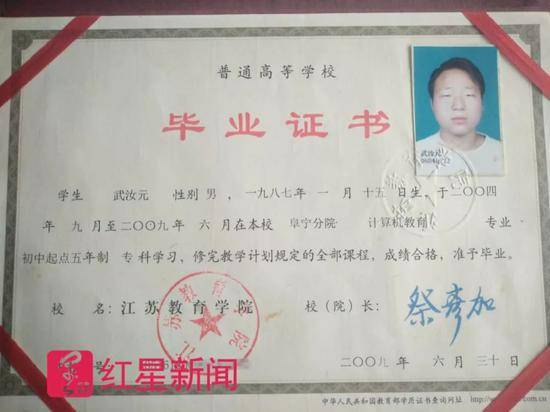 普通高等学校
毕业证书
武汝元
学生 武汝元 性别 男，一九八七年 一 月 十五 日生，于二〇〇四
年 九 月至二〇〇九年 六 月在本校 阜宁分院 计算机教育 专业
初中起点五年制 专 科学习，修完教学计划规定的全部课程，成绩合格，准予毕业。
校 名：江苏教育学院 校（院）长： 蔡彦加
江苏教育学院
号
二〇〇九 年 六 月 三十 日
红星新闻
中华人民共和国教育部学历证书查询网址